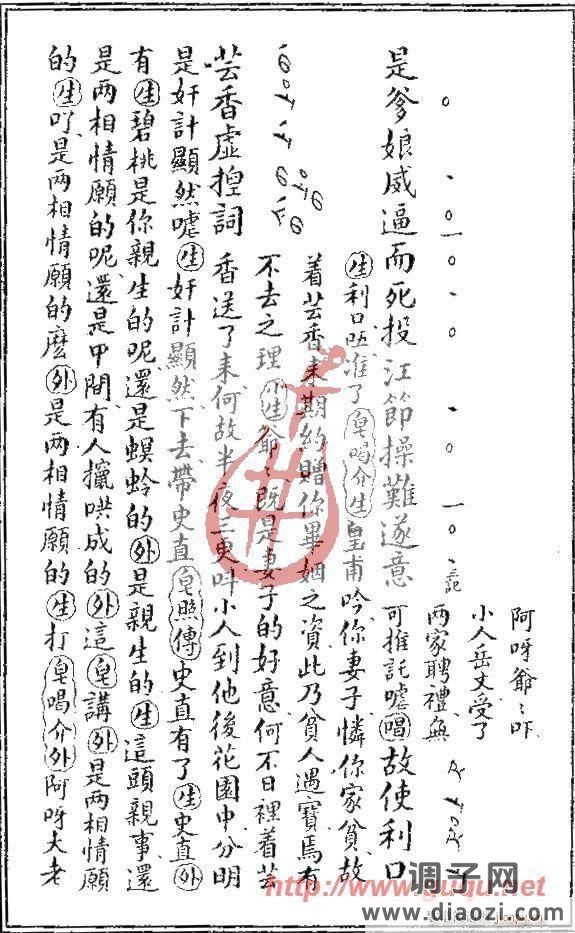 是爹娘威逼而死投江節操難遂意
阿呀爺〻吓
小人岳丈受了
两家聘禮無
可推託嘘唱故使利口
芸香虛揑詞
生利口 准了皂喝介生皇甫吟你妻子憐你家貧故
着芸香来期約贈你畢姻之資此乃貧人遇寶焉有
不去之理小生爺〻既是妻子的好意何不日裡着芸
香送了来何故半夜三更叫小人到他後花園中分明
是奸計顯然嘘生奸計顯然下去帶史直皂照傳史直有了生史直外
有生碧桃是你親生的呢還是螟蛉的外是親生的生這頭親事還
是两相情願的呢還是中間有人攛哄成的外這皂講外是两相情願
的生吖是两相情願的麽外是两相情願的生打皂喝介外阿呀大老
http://www.guqu.net
调子网
www.diaozi.com